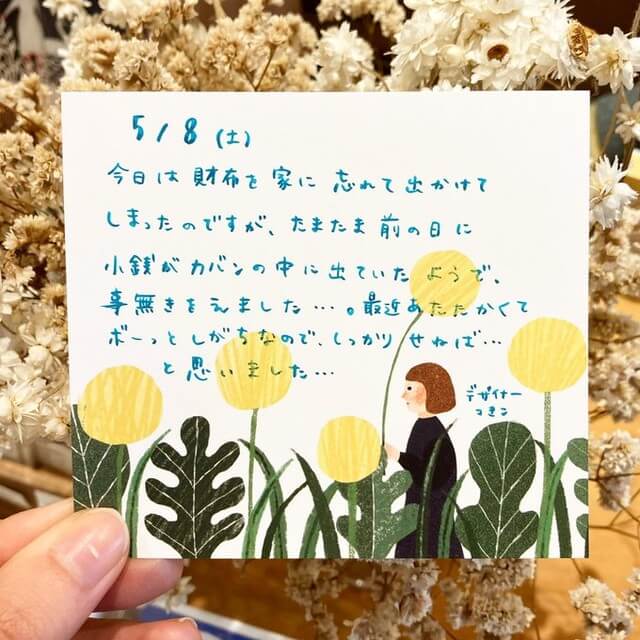 5/8(土)
今日は財布を家に忘れて出かけて
しまったのですが、たまたま前の日に
小銭がカバンの中に出ていたようで、
事無きをえました…。最近あたたかくて
ボーっとしがちなので、しっかりせねば…
と思いました…
デザイナー
マキコ